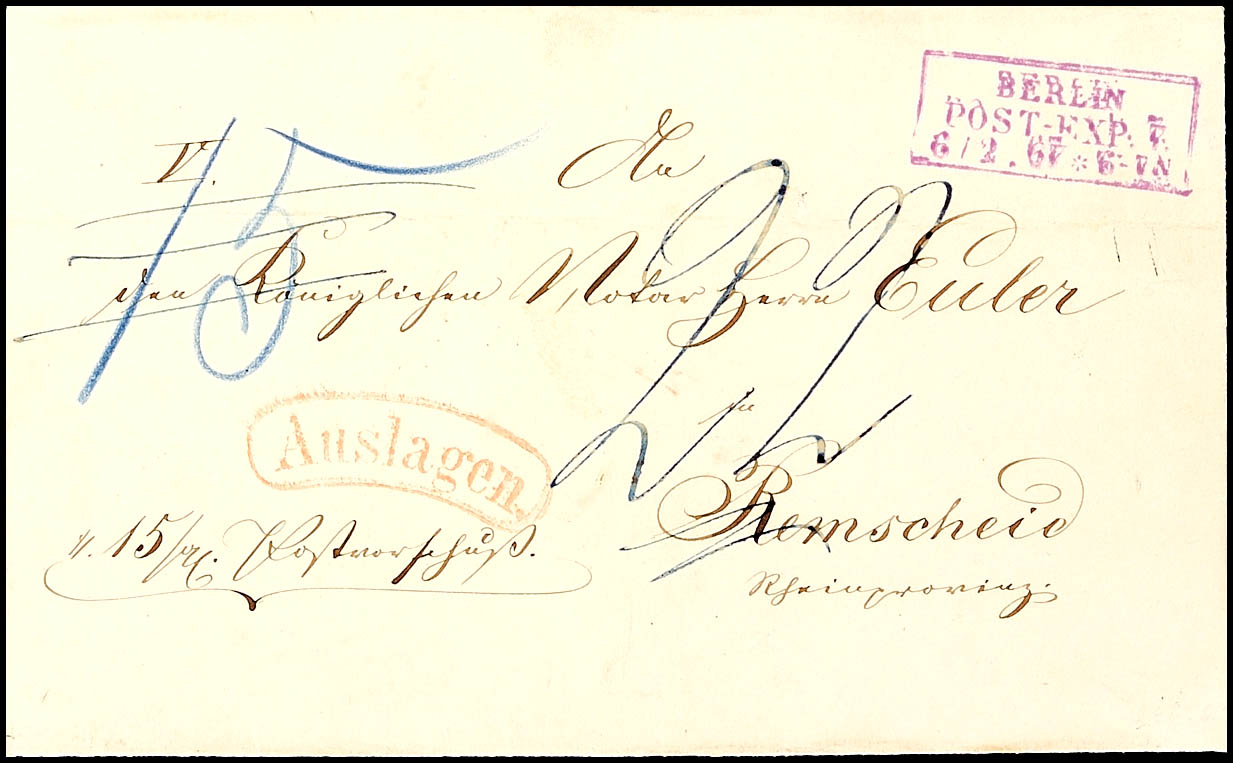 BERLIN
POST-EXP. 7.
6/2.67 * 6-7N
V.
An
den Königlichen Notar Herrn Euler
15
in
Auslagen.
Remscheid
15 Postvorschuß.
Rheinprovinz.